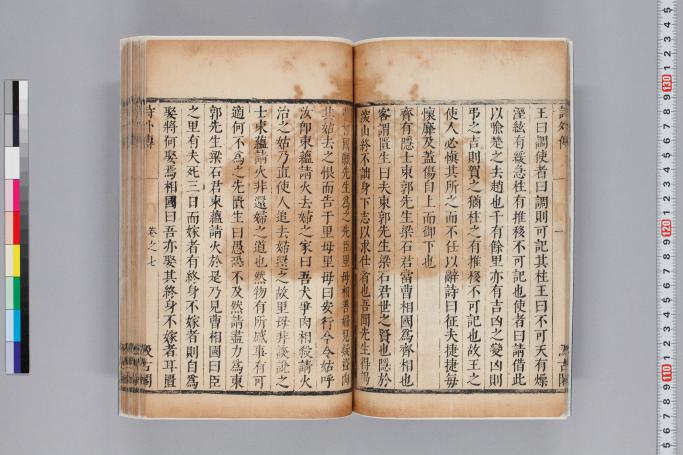 王曰調使者曰調則可記其柱王曰不可天有燥
溼絃有緩急柱有推移不可記也使者曰請借此
以喻楚之去趙也千有餘里亦有吉凶之變凶則
弔之吉則賀之猶柱之有推移不可記也故王之
使人必慎其所之而不任以辭詩曰征夫捷捷每
懷靡及蓋傷自上而御下也
齊有隱士東郭先生梁石君當曹相國爲齊相也
客謂匱生曰夫東郭先生梁石君世之賢也隱於
深山終不詘身下志以求仕者也吾聞先生得謁
曹相國願先生爲之先臣里母相善婦見疑盜肉
其姑去之恨而告于里母里母曰安行今令姑呼
汝即束蘊請火去婦之家曰吾犬爭肉相殺請火
治之姑乃直使人追去婦還之故里母非談說之
士束蘊請火非還婦之道也然物有所感事有可
適何不爲之先匱生曰愚恐不及然請盡力爲東
郭先生梁石君束蘊請火於是乃見曹相國曰臣
之里有夫死三日而嫁者有終身不嫁者則自爲
娶將何娶焉相國曰吾亦娶其終身不嫁者耳匱
詩外傳
卷之七
汲古閣